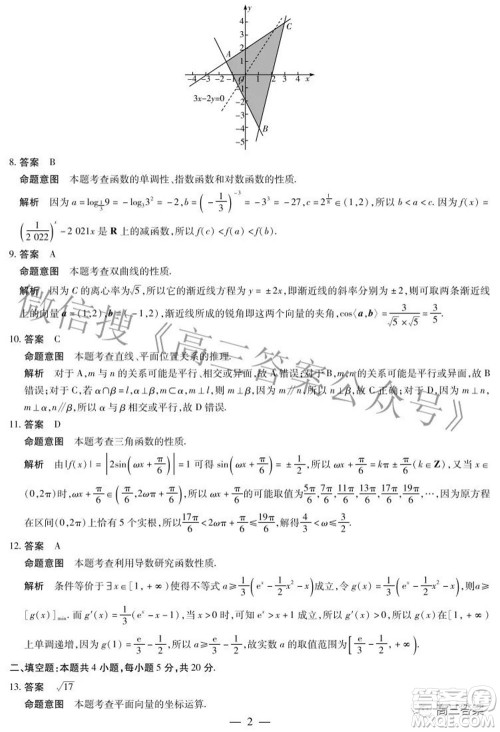 y
4
3
2
1
C
A
-4 -3 -2 -1 O 1 2 3 4 x
3x-2y=0
-1
-2
-3
-4
-5
B
8. 答案 B
命题意图 本题考查函数的单调性、指数函数和对数函数的性质.
解析 因为 a=log_{1/3}9=-log_3 3^2=-2, b=(-1/3)^{-3}=-3^3=-27, c=2^{1/8}∈(1,2), 所以 b<a<c. 因为 f(x)=
(1/2 022)^x-2 021x 是 R 上的减函数, 所以 f(c)<f(a)<f(b).
9. 答案 A
命题意图 本题考查双曲线的性质.
解析 因为 C 的离心率为√5, 所以它的渐近线方程为 y=±2x, 即渐近线的斜率分别为 ±2, 则可取两条渐近线
上的向量 a=(1,2), b=(1,-2), 渐近线所成的锐角即这两个向量的夹角, cos⟨a,b⟩=3/(√5×√5)=3/5.
10. 答案 C
命题意图 本题考查直线、平面位置关系的推理.
解析 对于 A, m 与 n 可能平行、相交或异面, 故 A 错误; 对于 B, α 与 β 可能平行或相交, 故 B
错误; 对于 C, 若 α∩β=l, α⊥β, m⊂α, m⊥l, 则 m⊥β, 因为 m∥n, 所以 n⊥β, 故 C 正确; 对于 D, m⊥n,
m⊥α, n∥β, 所以 α 与 β 可能相交或平行, 故 D 错误.
11. 答案 D
命题意图 本题考查三角函数的性质.
解析 由|f(x)|=|2sin(ωx+π/6)|=1 可得 sin(ωx+π/6)=±1/2, 所以 ωx+π/6=kπ±π/6(k∈Z), 又当 x∈
(0,2π)时, ωx+π/6∈(π/6,2πω+π/6), 所以 ωx+π/6的可能取值为5π/6,7π/6,11π/6,13π/6,17π/6,19π/6,…, 因为原方程
在区间(0,2π)上恰有 5 个实根, 所以17π/6<2πω+π/6≤19π/6, 解得4/3<ω≤3/2.
12. 答案 A
命题意图 本题考查利用导数研究函数性质.
解析 条件等价于 ∃x∈[1,+∞)使得不等式 a≥1/3(e^x-1/2x^2-x)成立, 令 g(x)=1/3(e^x-1/2x^2-x), 所以 a≥
[g(x)]_min. 而 g'(x)=1/3(e^x-x-1), 当 x>0 时, 可证 e^x>x+1, 所以 g'(x)>0, 所以 g(x)在[1,+∞)
上单调递增, 因为 g(1)=e/3-1/2, 所以 a≥e/3-1/2, 故实数 a 的取值范围为[e/3-1/2,+∞).
二、填空题:本题共 4 小题,每小题 5 分,共 20 分.
13. 答案 √17
命题意图 本题考查平面向量的坐标运算.
— 2 —
微信搜《高三答案公众号》
高三答案
MXQE.COM